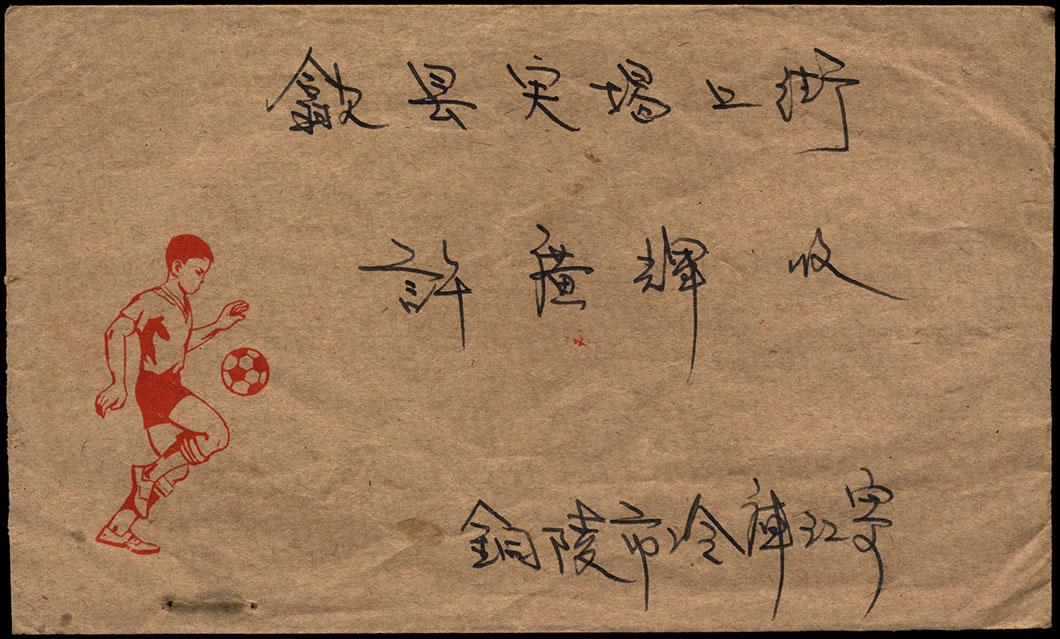 歙县实堨上街
許廣輝 收
銅陵市冷庫江寄